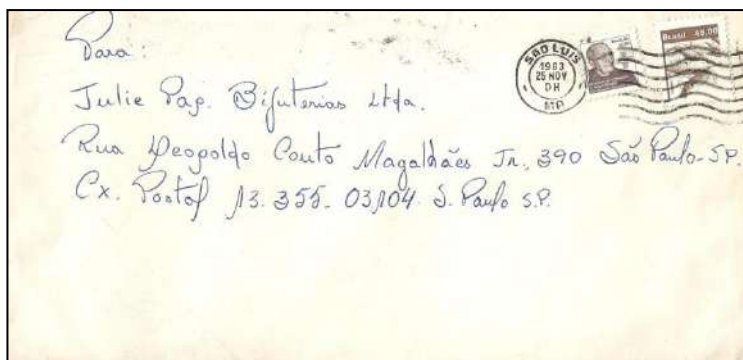 Para:
Julie Pap. Bijuterias Ltda.
Rua Leopoldo Couto Magalhães Jr., 390 São Paulo-SP.
Cx. Postal 13.355-03104 S. Paulo S.P.
SÃO LUIS
1983
25 NOV
DH
MA
Brasil 45,00